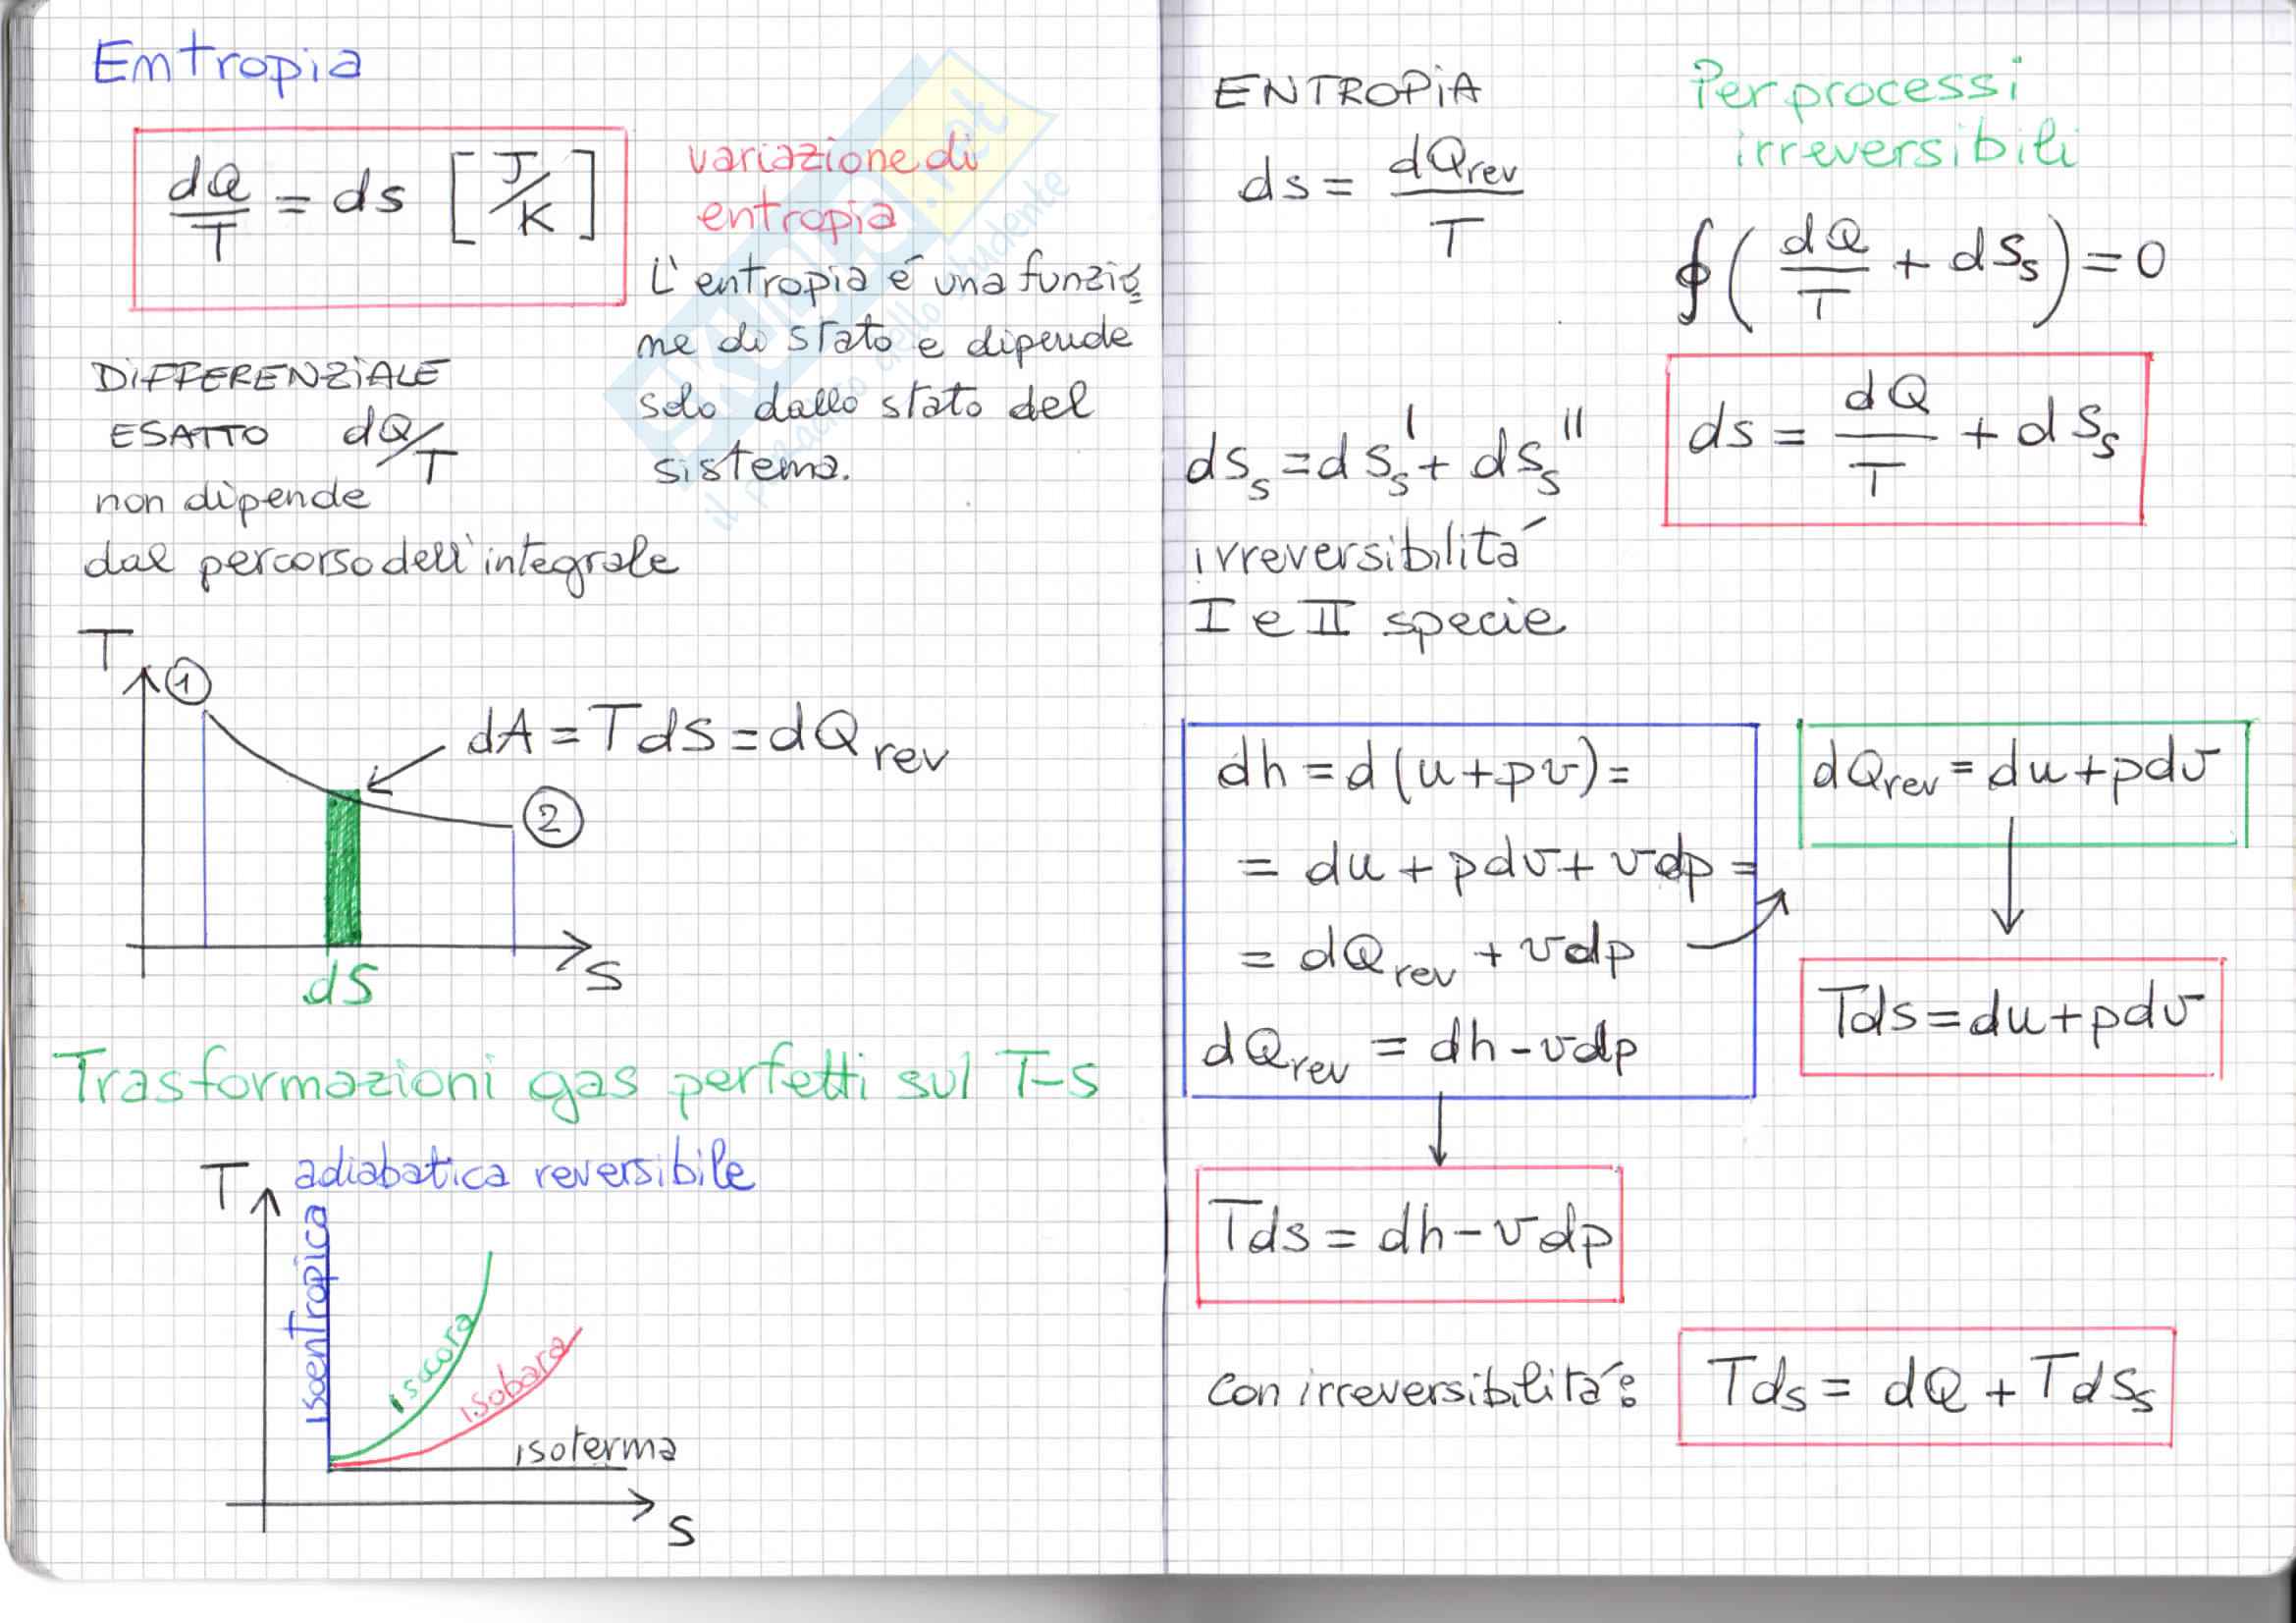 Entropia
dQ/T = ds [J/K]
variazione di
entropia
L'entropia é una funzio
ne di stato e dipende
solo dallo stato del
sistema.
DIFFERENZIALE
ESATTO dQ/T
non dipende
dal percorso dell'integrale
T
1
dA = Tds = dQrev
2
dS
S
Trasformazioni gas perfetti sul T-s
T adiabatica reversibile
isoentropica
isocora
isobara
isoterma
S
ENTROPIA
ds = dQrev/T
Per processi
irreversibili
∮(dQ/T + dSs) = 0
ds = dQ/T + dSs
dSs = dSs' + dSs''
irreversibilitá
I e II specie
dh = d(u+pv) =
= du + pdv + vdp =
= dQrev + vdp
dQrev = dh - vdp
dQrev = du + pdv
Tds = du + pdv
Tds = dh - vdp
con irreversibilitá: Tds = dQ + TdSs
SKUOLA.net
il paradiso dello studente